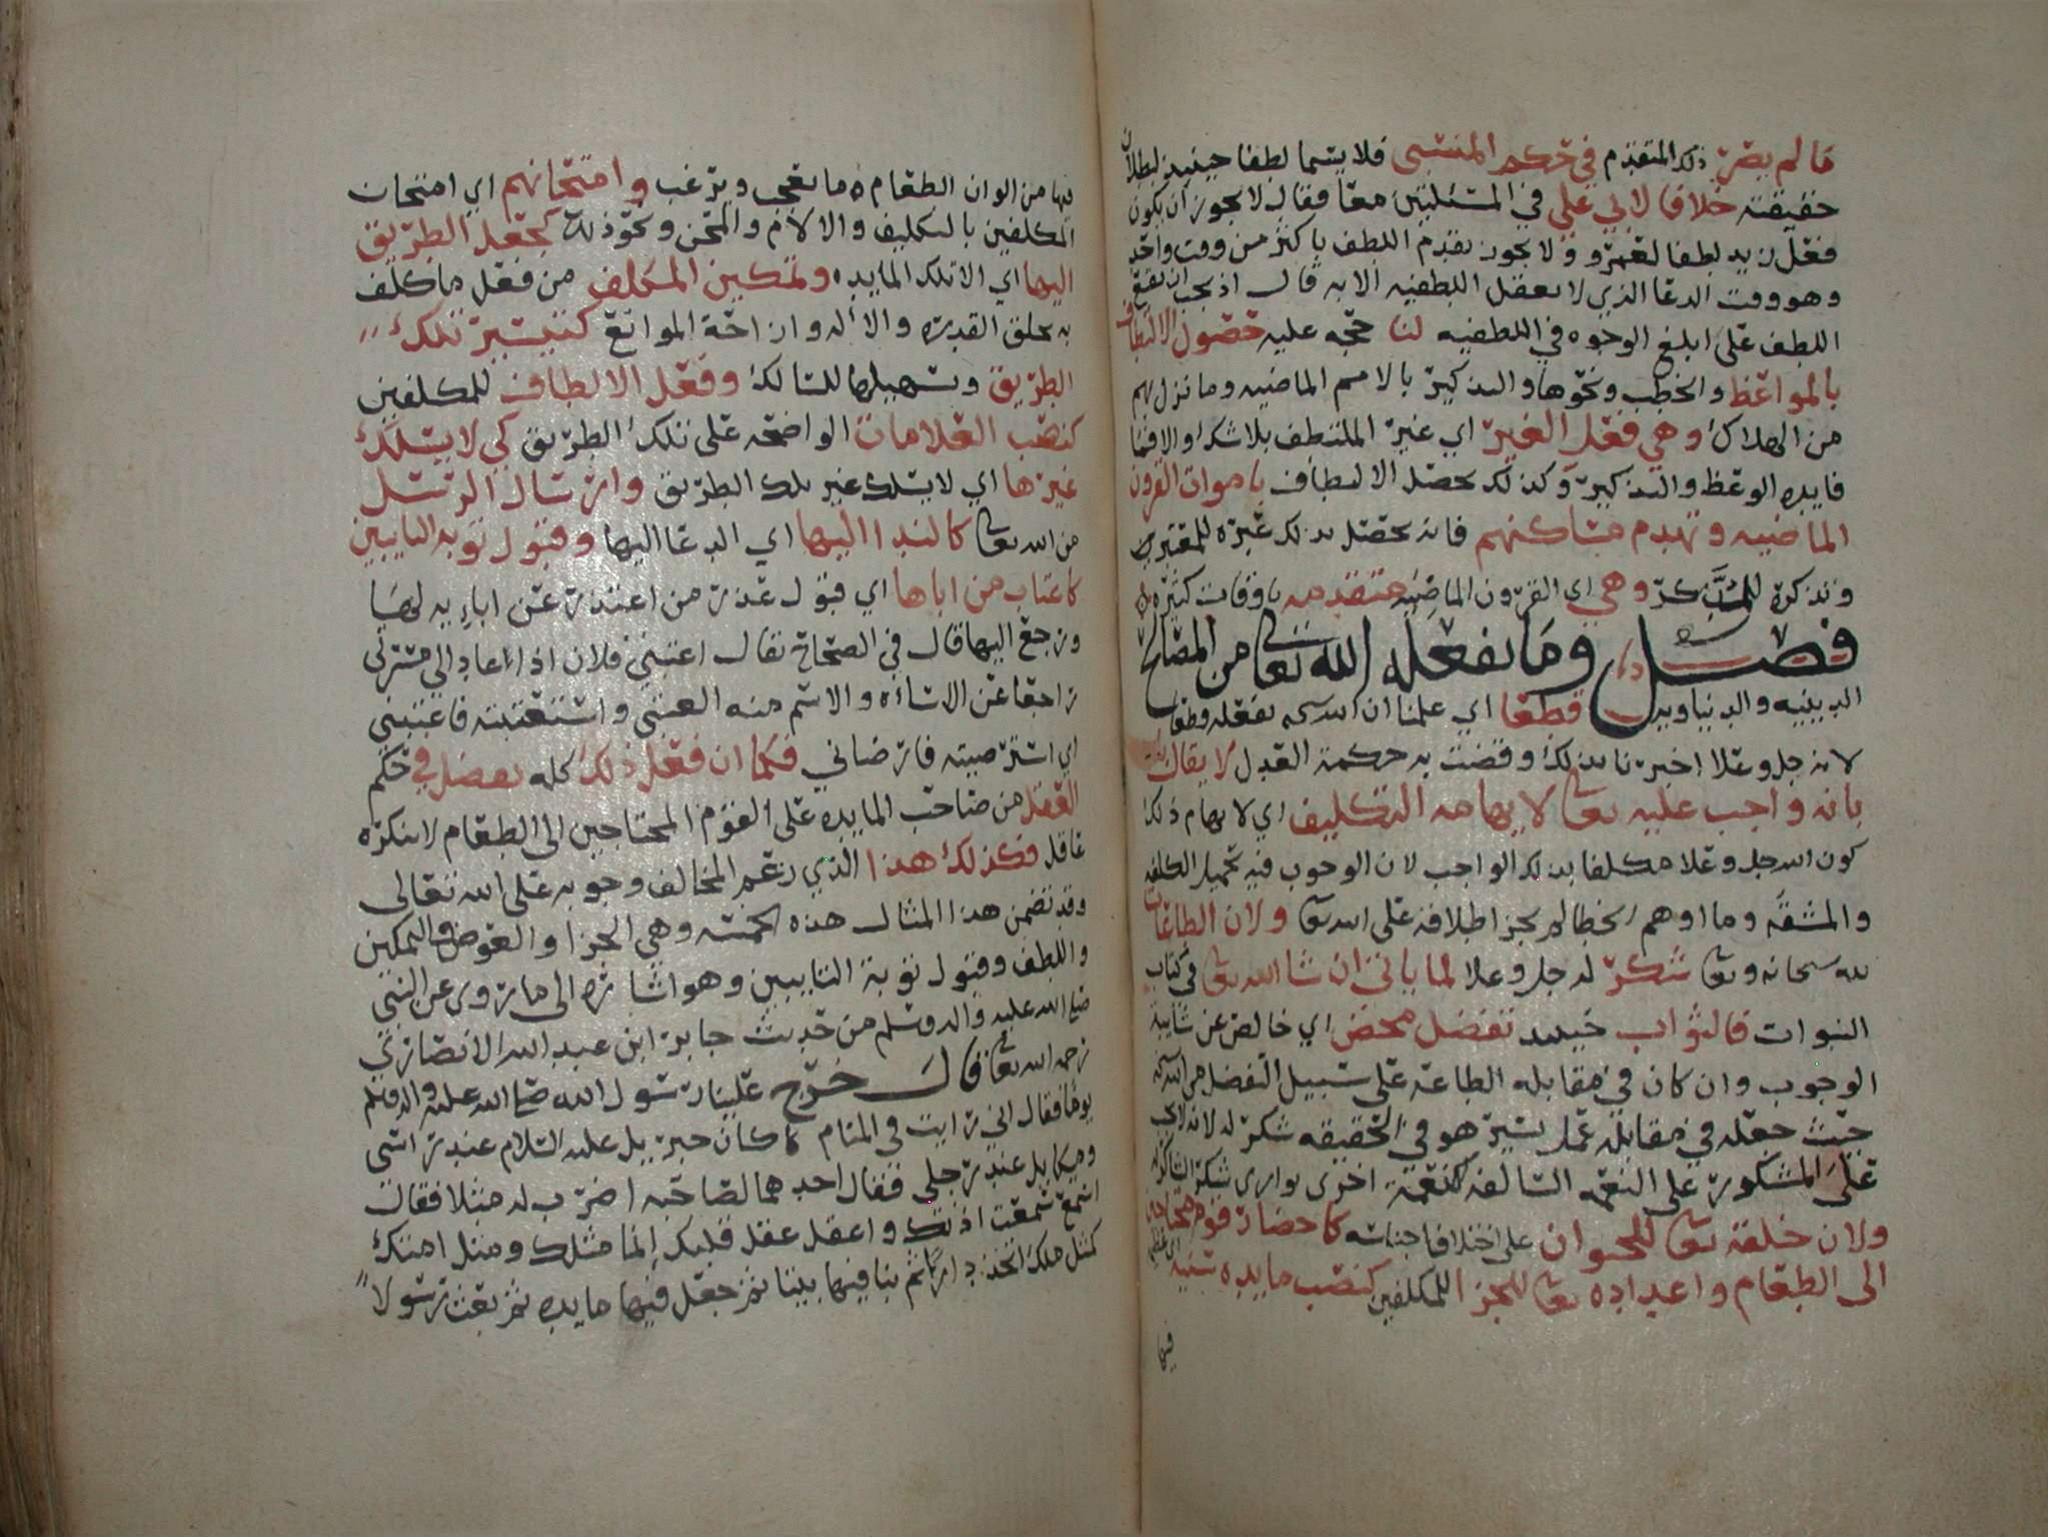 ما لم يصر ذلك المتقدم في حكم المنسي فلا يسما لطفا حينئذ لبطلان
حقيقته خلافا لابي علي في المسئلتين معا فقال لا يجوز ان يكون
فعل زيد لطفا لعمرو ولا يجوز تقدم اللطف باكثر من وقت واحد
وهو وقت الدعا الذي لا تعقل اللطفيه الا به قال اذ يجب ان يقع
اللطف على ابلغ الوجوه في اللطفيه لنا حجه عليه حصول الالتطاف
بالمواعظ والخطب ونحوها والتذكير بالامم الماضيه وما نزل بهم
من الهلاك وهي فعل الغير اي غير الملتطف بلا شك والا فما
فايده الوعظ والتذكير وكذلك يحصل الالتطاف باموات القرون
الماضيه وتهدم مساكنهم فانه يحصل بذلك عبرة للمعتبرين
وتذكرة للمتذكر وهي اي القرون الماضيه متقدمه باوقات كثيره
فصل وما يفعله الله تعا من المصالح
الدينيه والدنياويه قطعا اي علمنا ان الله سبحنه يفعله قطعا
لانه جل وعلا اخبرنا بذلك وقضت به حكمة العدل لا يقال
بانه واجب عليه تعا لايهامه التكليف اي لايهام ذلك
كون الله جل وعلا مكلفا بذلك الواجب لان الوجوب فيه تحميل الكلفه
والمشقه وما اوهم الخطا لم يجز اطلاقه على الله تعا ولان الطاعات
لله سبحانه وتعا شكر له جل وعلا لما ياتي ان شا الله تعا في كتاب
النبوات فالثواب حينئذ تفضل محض اي خالص عن شايبة
الوجوب وان كان في مقابله الطاعه على سبيل التفضل من الله سبحنه
حيث جعله في مقابلة عمل يسير هو في الحقيقه شكر له لانه لا يجب
على المشكور على النعمه السالفه نعمة اخرى توازي شكر الشاكر
ولان خلقه تعا للحيوان على اختلاف اجناسه كاحضار قوم محتاجين
الى الطعام واعداده تعا للجزا للمكلفين كنصب مايده سنية
فيها
فيها من الوان الطعام ما يعجب ويرغب وامتحانهم اي امتحان
المكلفين بالتكليف والالام والمحن ونحو ذلك كجعل الطريق
اليها اي الا تلك المايده وتمكين المكلف من فعل ما كلف
به بخلق القدره والاله وازاحة الموانع كتيسير تلك
الطريق وتسهيلها للسالك وفعل الالطاف للمكلفين
كنصب العلامات الواضحه على تلك الطريق كي لا يسلك
غيرها اي لا يسلك غير تلك الطريق وارسال الرسل
من الله تعا كالندا اليها اي الدعا اليها وقبول توبه التايبين
كاعتاب من اباها اي قبول عذر من اعتذر عن ابايه لها
ورجع اليها قال في الصحاح يقال اعتبني فلان اذا عاد الى مسرتي
راجعا عن الاساءه والاسم منه العتبى واستعتبته فاعتبني
اي استرضيته فارضاني فكما ان فعل ذلك كله تفضل في حكم
العقل من صاحب المايده على القوم المحتاجين الى الطعام لا ينكره
عاقل فكذلك هذا الذي زعم المخالف وجوبه على الله تعالى
وقد تضمن هذا المثال هذه الخمسه وهي الجزا والعوض والتمكين
واللطف وقبول توبة التايبين وهو اشارة الى ما روي عن النبي
صلى الله عليه واله وسلم من حديث جابر ابن عبد الله الانصاري
رحمه الله تعا قال خرج علينا رسول الله صلى الله عليه واله وسلم
يوما فقال اني رايت في المنام كان جبريل عليه السلام عند راسي
وميكايل عند رجلي فقال احدهما لصاحبه اضرب له مثلا فقال
اسمع سمعت اذنك واعقل عقل قلبك انما مثلك ومثل امتك
كمثل ملك اتخذ دارا ثم بنا فيها بيتا ثم جعل فيها مايده ثم بعث رسولا